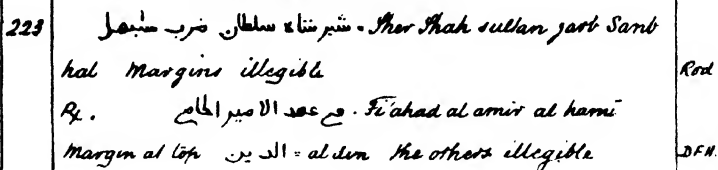 223 شیر شاه سلطان ضرب سنبهل = Sher Shah sultan zarb Sanb
hal Margins illegible Rod
Rx. في عهد الامير الحامي . Fi'ahad al amir al hami
Margin at top الدين = al din the others illegible D.F.H.